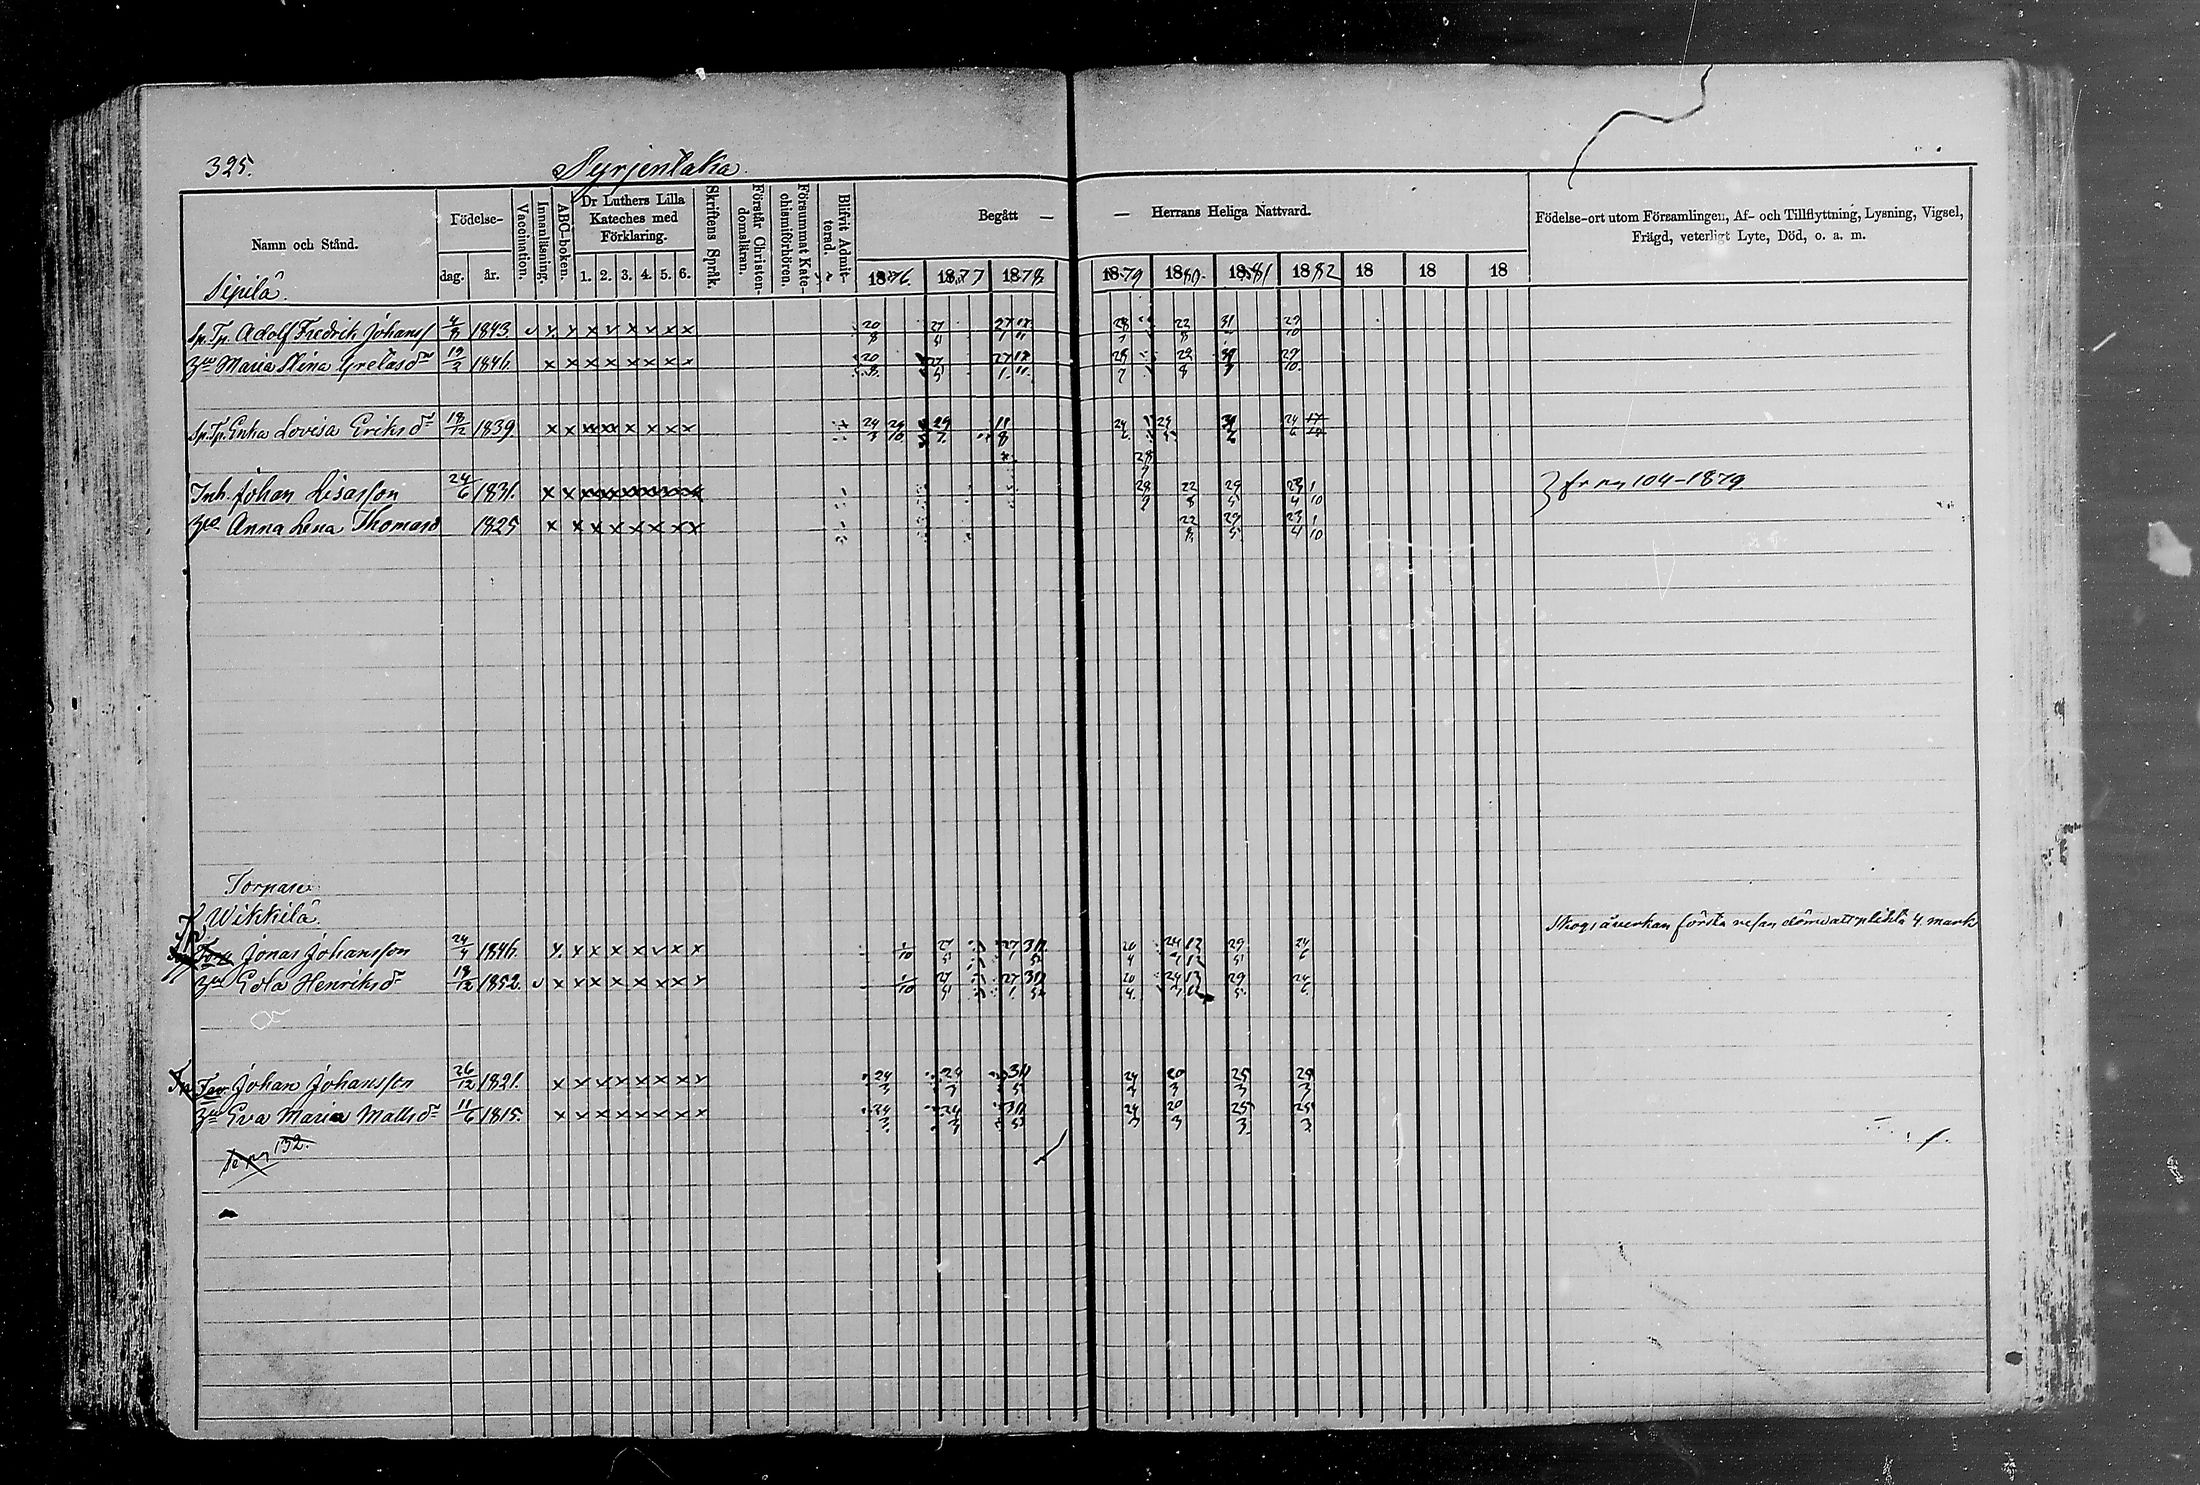 325.
Syrjentaka.
Namn och Stånd.
Födelse-
dag. år.
Vaccination.
Innanläsning.
ABC-boken.
Dr Luthers Lilla
Kateches med
Förklaring.
1. 2. 3. 4. 5. 6.
Skriftens Språk.
Förstår Christen-
domsläran.
Försummat Kate-
chismiförhören.
Blifvit Admit-
terad.
Begått — — Herrans Heliga Nattvard.
1876. 1877 1878 1879 1880. 1881 1882 18 18 18
Födelse-ort utom Församlingen, Af- och Tillflyttning, Lysning, Vigsel,
Frägd, veterligt Lyte, Död, o. a. m.
Sipilä.
Sp. Tp. Adolf Fredrik Johanss 4/8 1843. v x x x v x v x x 20/8 27/5 27/1 28/7 22/8 31 29/10
Maria Stina Gretasdr 19/2 1846. x x x x x x x x 20/8 27/5 27/1 28/7 29/8 29/10
Sp. Tp. Enka Lovisa Eriksdr 18/12 1839. x x x x x x x x 24/3 29/10 29/7 24 29 31 24/6
28/9
Inh. Johan Lisasson 24/6 1831. x x x x x x x x 28/9 22/8 29/5 23/4 1/10
Anna Lena Thomasd 1825 x x x x x x x x 22/8 29/5 23/4 1/10
} fr. pag 104-1879
Torpare
Wikkilä.
Skogsåverkan första resan dömd att plikta 4 mark
Jonas Johansson 24/4 1846. x. x x x x v x x 1/10 27/5 27/1 20/4 29/5 24/6
Eva Henriksdr 18/12 1852. v x x x x x x x x 1/10 27/5 27/1 20/4. 29/5. 24/6.
Tp Johan Johansson 26/12 1821. x x v x x x x v 24/3 24/3 20/3 25/3 25/3
Eva Maria Mattsdr 11/6 1815. x x x x x x x x 24/3. 24/3 24/3 20/3 25/3. 25/3
132.